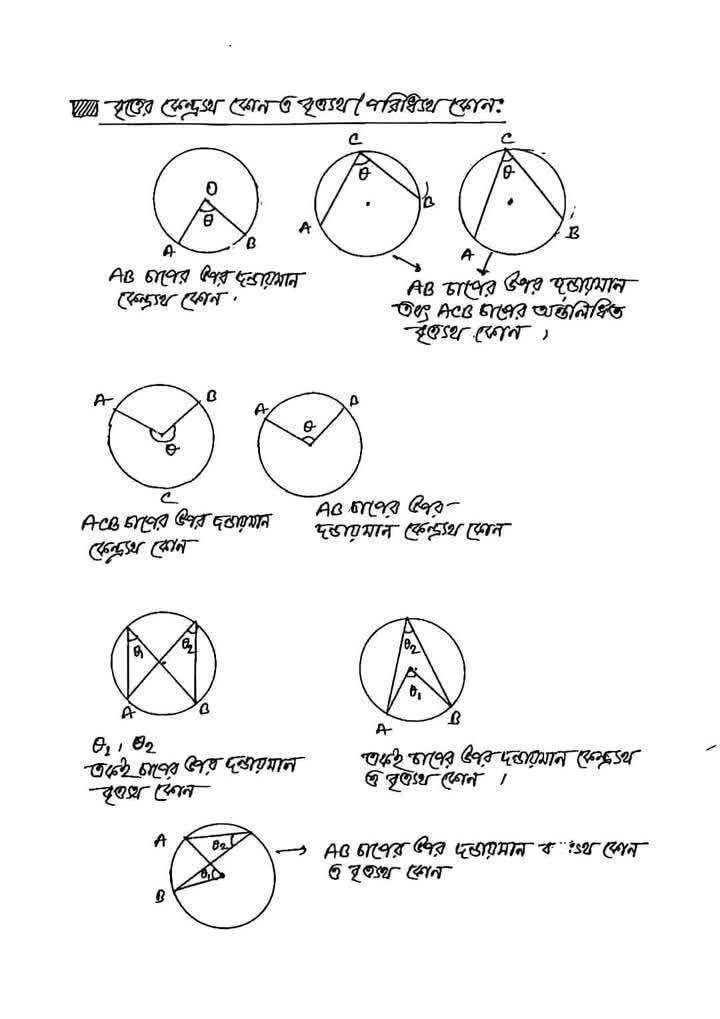 বৃত্তের কেন্দ্রস্থ কোন ও বৃত্তস্থ/পরিধিস্থ কোন:
O θ A B
C θ A B
C θ A B
AB চাপের উপর দন্ডায়মান
কেন্দ্রস্থ কোন ।
AB চাপের উপর দন্ডায়মান
এবং ACB চাপের অন্তর্লিখিত
বৃত্তস্থ কোন ।
A B θ C
A B θ
ACB চাপের উপর দন্ডায়মান
কেন্দ্রস্থ কোন
AB চাপের উপর
দন্ডায়মান কেন্দ্রস্থ কোন
θ1 θ2 A B
θ2 θ1 A B
θ1, θ2
একই চাপের উপর দন্ডায়মান
বৃত্তস্থ কোন
একই চাপের উপর দন্ডায়মান কেন্দ্রস্থ
ও বৃত্তস্থ কোন ।
A θ2 θ1 B
AB চাপের উপর দন্ডায়মান কোন
ও বৃত্তস্থ কোন